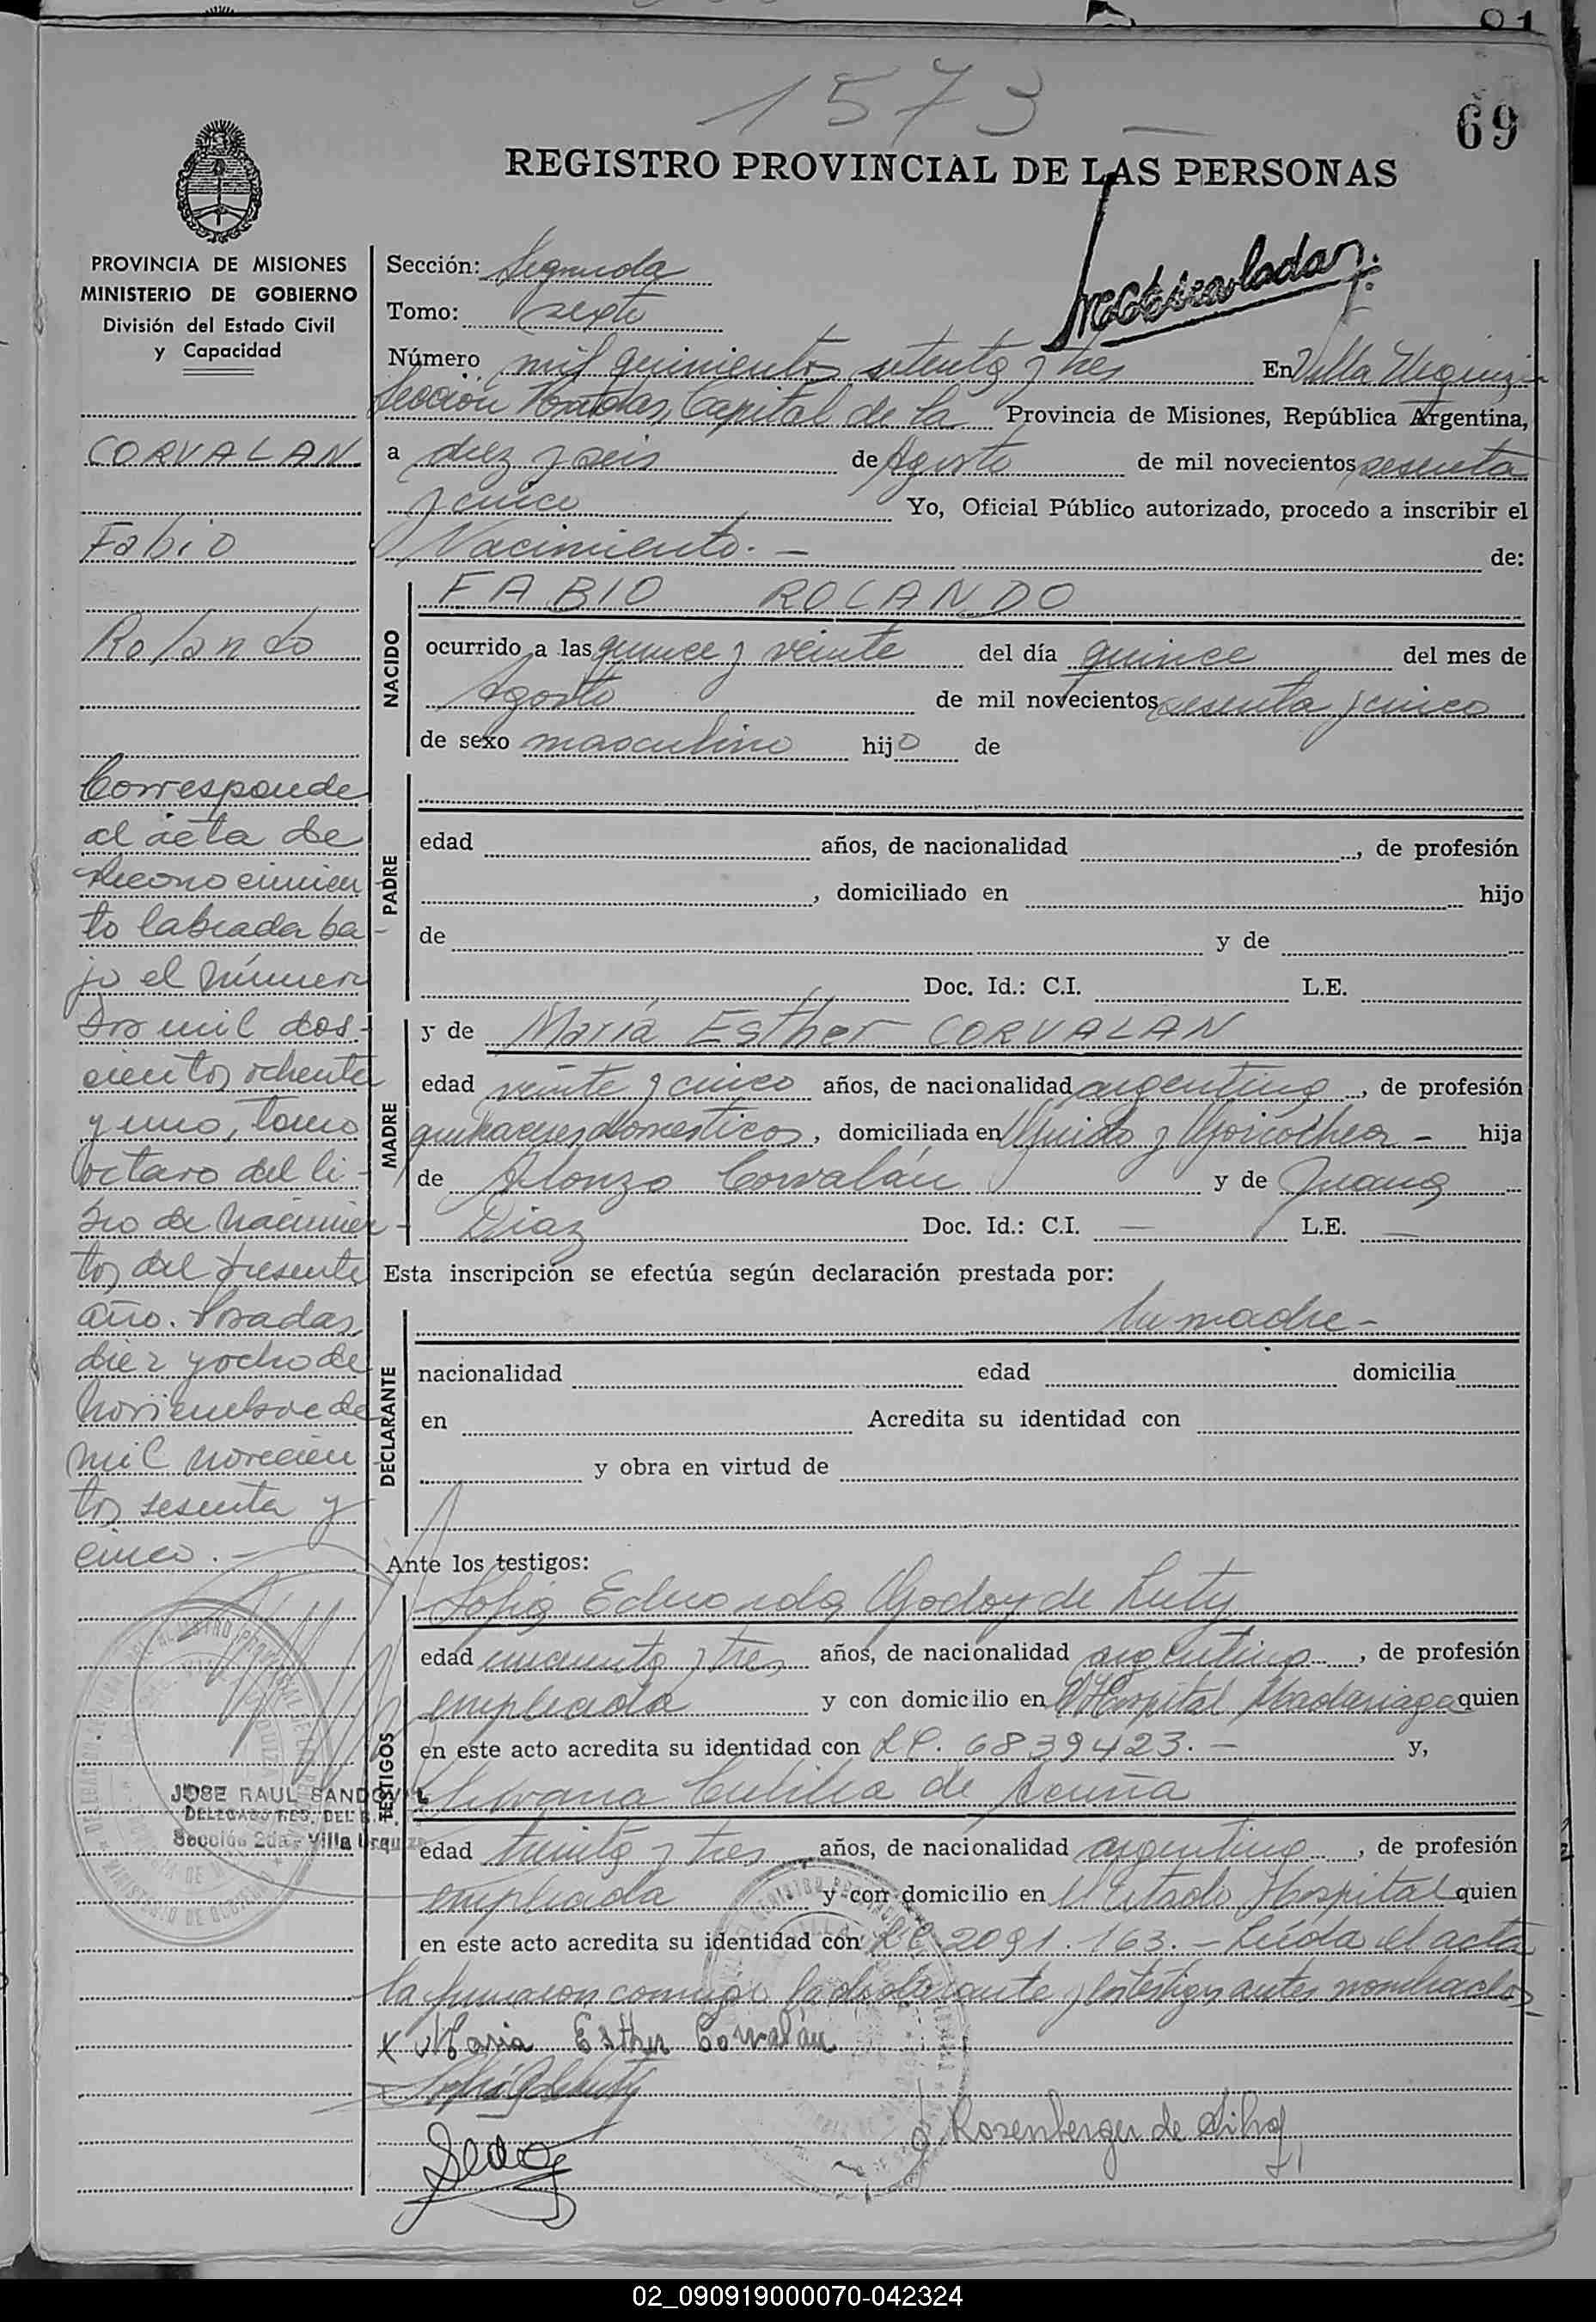 1573 —
69
REGISTRO PROVINCIAL DE LAS PERSONAS
PROVINCIA DE MISIONES
MINISTERIO DE GOBIERNO
División del Estado Civil
y Capacidad
CORVALAN
Fabio
Rolando
Corresponde
al acta de
Reconocimien
to labrada ba-
jo el número
Dos mil dos-
cientos ochenta
y uno, tomo
octavo del li-
bro de Nacimien-
tos del presente
año. Posadas,
diez y ocho de
Noviembre de
mil novecien
tos sesenta y
cinco. -
JOSE RAUL SANDOVAL
Sección 2da - Villa Urquiza
Sección: Segunda
Tomo: sexto
Número mil quinientos setenta y tres En Villa Urquiza
Sección Posadas, Capital de la Provincia de Misiones, República Argentina,
a diez y seis de Agosto de mil novecientos sesenta
y cinco Yo, Oficial Público autorizado, procedo a inscribir el
Nacimiento. - de:
NACIDO
FABIO ROLANDO
ocurrido a las quince y veinte del día quince del mes de
Agosto de mil novecientos sesenta y cinco
de sexo masculino hijo de
PADRE
edad años, de nacionalidad , de profesión
, domiciliado en hijo
de y de
Doc. Id.: C.I. L.E.
MADRE
y de María Esther CORVALAN
edad veinte y cinco años, de nacionalidad argentina, de profesión
quehaceres domesticos, domiciliada en y - hija
de Alonzo Corvalán y de Juana
Diaz Doc. Id.: C.I. — L.E. —
Esta inscripción se efectúa según declaración prestada por:
DECLARANTE
Su madre -
nacionalidad edad domicilia
en Acredita su identidad con
y obra en virtud de
Ante los testigos:
TESTIGOS
Sofia Eduarda Godoy de Luty
edad cincuenta y tres años, de nacionalidad argentina, de profesión
empleada y con domicilio en Hospital Madariaga quien
en este acto acredita su identidad con LC. 6839423. - y,
de Acuña
edad treinta y tres años, de nacionalidad argentina, de profesión
empleada y con domicilio en el citado Hospital quien
en este acto acredita su identidad con LC 2091.163. - Leída el acta
la firmaron conmigo la declarante y los testigos antes nombrados
x Maria Esther Corvalán
Rosenberger de Silva
02_090919000070-042324